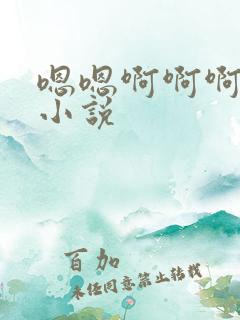 嗯嗯啊啊啊
小说
百加
未经同意禁止转载